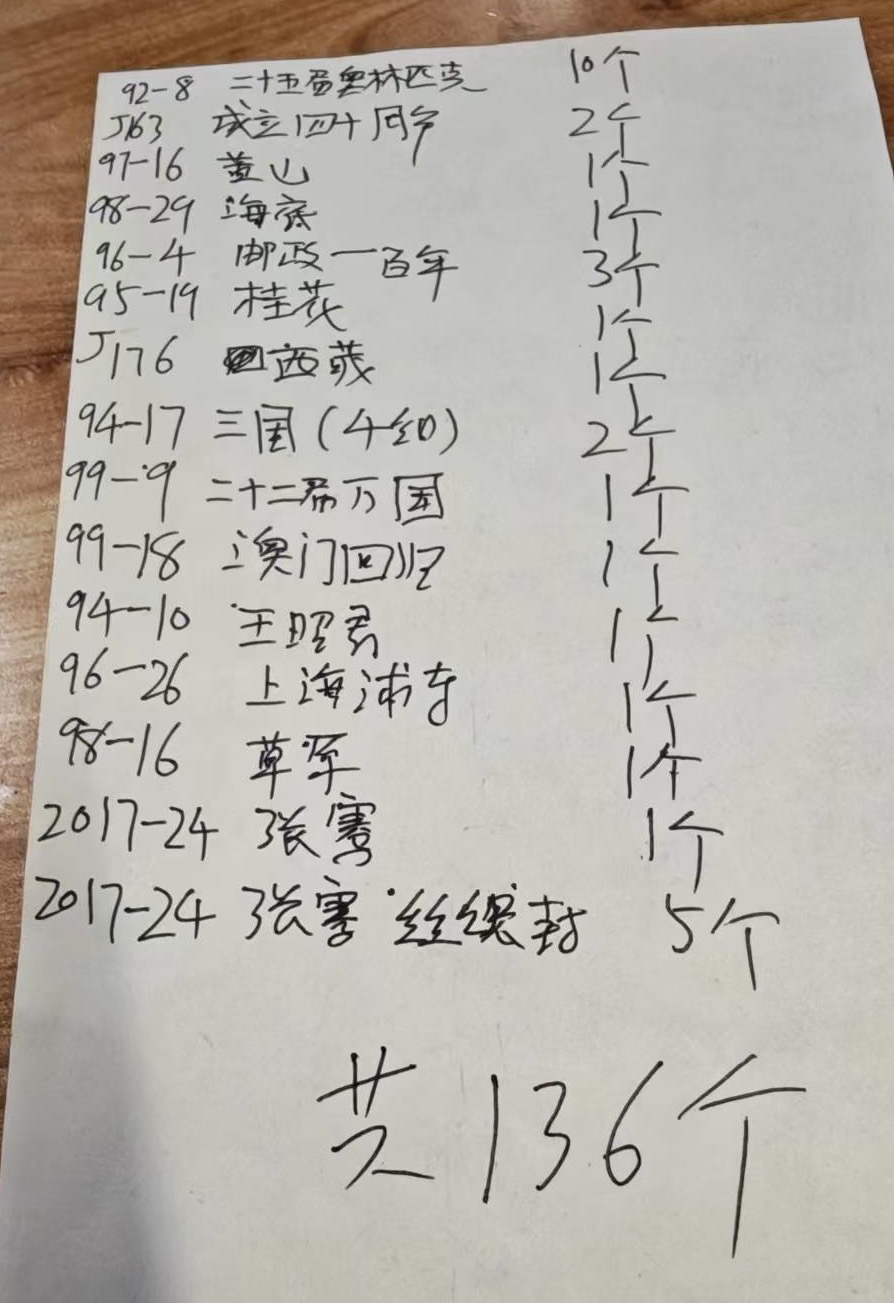 92-8 二十五届奥林匹克 10个
J163 成立四十周年 2个
97-16 黄山 1个
98-29 海底 1个
96-4 邮政一百年 3个
95-19 桂花 1个
J176 西藏 1个
94-17 三国(4组) 2个
99-9 二十二届万国 1个
99-18 澳门回归 1个
94-10 王昭君 1个
96-26 上海浦东 1个
98-16 草原 1个
2017-24 张骞 1个
2017-24 张骞·丝绸封 5个
共136个